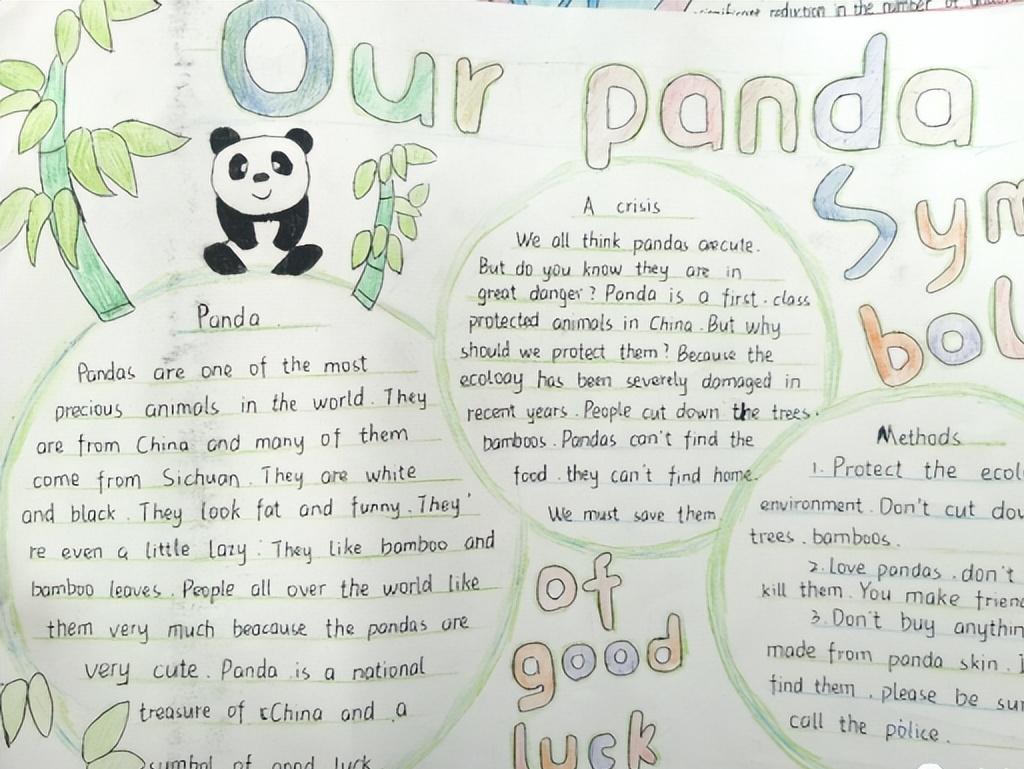 significant reduction in the number of
Our panda
Sym
bol
of
good
luck
Panda
Pandas are one of the most
precious animals in the world. They
are from China and many of them
come from Sichuan. They are white
and black. They look fat and funny. They'
re even a little lazy. They like bamboo and
bamboo leaves. People all over the world like
them very much beacause the pandas are
very cute. Panda is a national
treasure of China and a
symbol of good luck
A crisis
We all think pandas are cute.
But do you know they are in
great danger? Panda is a first-class
protected animals in China. But why
should we protect them? Because the
ecoloay has been severely damaged in
recent years. People cut down the trees.
bamboos. Pandas can't find the
food. they can't find home.
We must save them
Methods
1. Protect the ecol
environment. Don't cut dow
trees. bamboos.
2. Love pandas. don't
kill them. You make frien
3. Don't buy anythin
made from panda skin. I
find them. please be su
call the police.